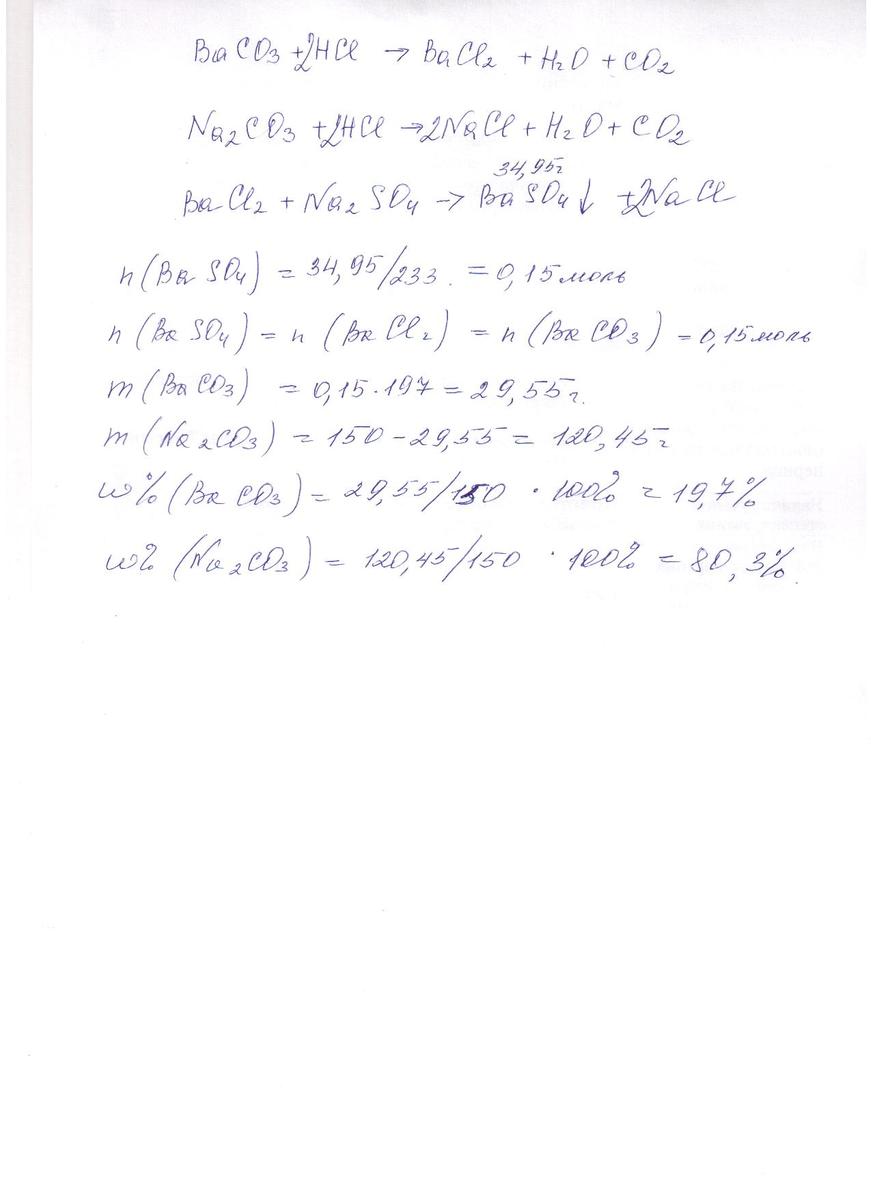 BaCO3 +2HCl → BaCl2 + H2O + CO2
Na2CO3 +2HCl →2NaCl + H2O + CO2
34,95г
BaCl2 + Na2SO4 → BaSO4↓ +2NaCl
n(BaSO4) = 34,95/233 = 0,15моль
n(BaSO4) = n(BaCl2) = n(BaCO3) = 0,15моль
m(BaCO3) = 0,15·197 = 29,55г.
m(Na2CO3) = 150-29,55 = 120,45г
w%(BaCO3) = 29,55/150 · 100% = 19,7%
w%(Na2CO3) = 120,45/150 · 100% = 80,3%.